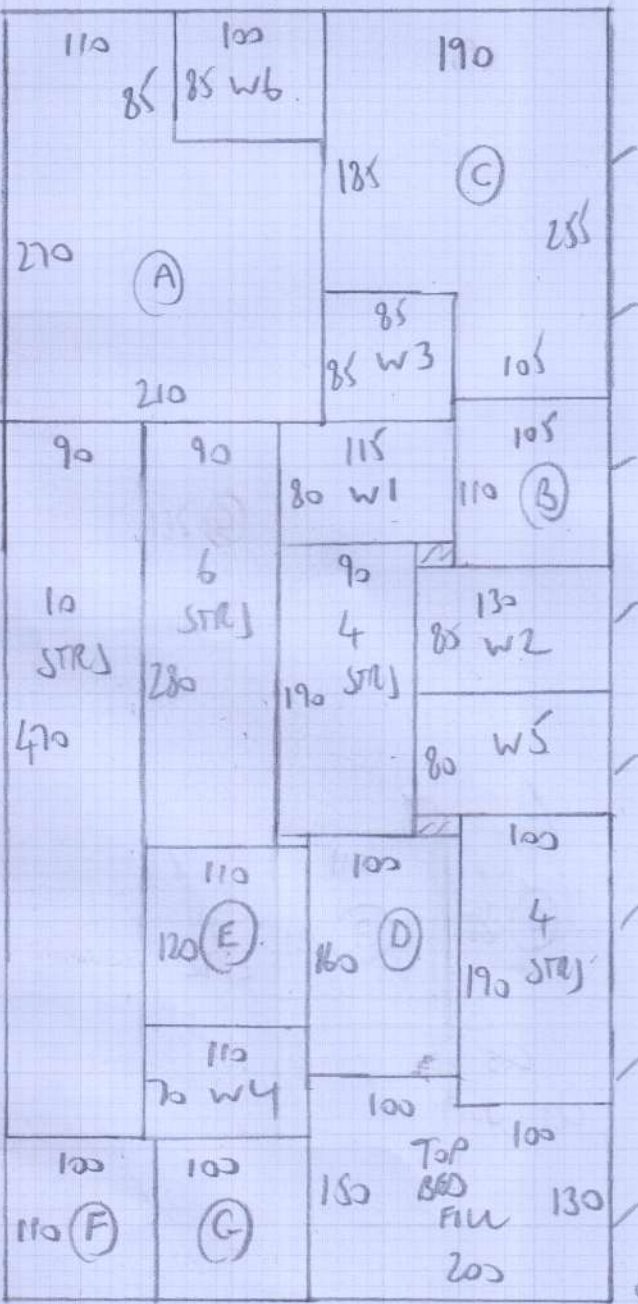 110
85
100
85 W6
190
185
C
255
270
A
210
85
85 W3
105
90
90
115
80 W1
105
110 B
10
STRS
470
6
STRS
280
90
4
STRS
190
130
85 W2
80 W5
110
120 E
100
160 D
100
4
STRS
190
110
70 W4
100
100
150
TOP
BED
FILL
130
200
100
110 F
100
G